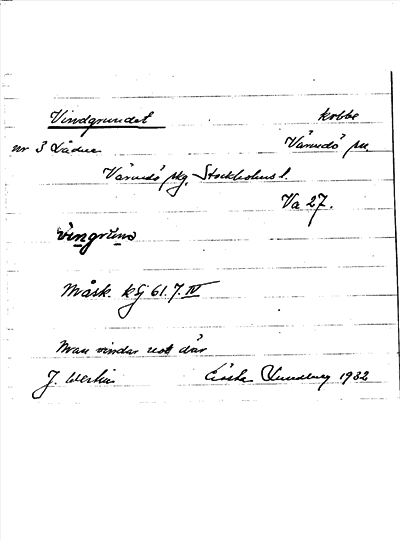 Vindgrundet kobbe
nr 3 Värmdö sn.
Värmdö skg. Stockholms l.
Va 27.
vingrunn
Måsk. kg 61.7.IV
Man vindar not där
J. Westin Gösta Lundberg 1932